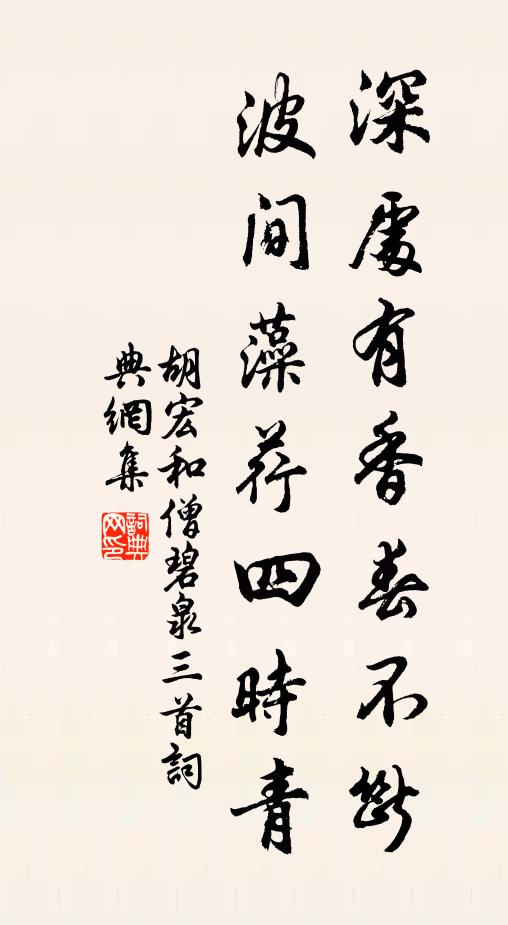 深處有香春不斷
波間藻荇四時青
胡宏和僧碧泉三首詞
典網集
詞典網印